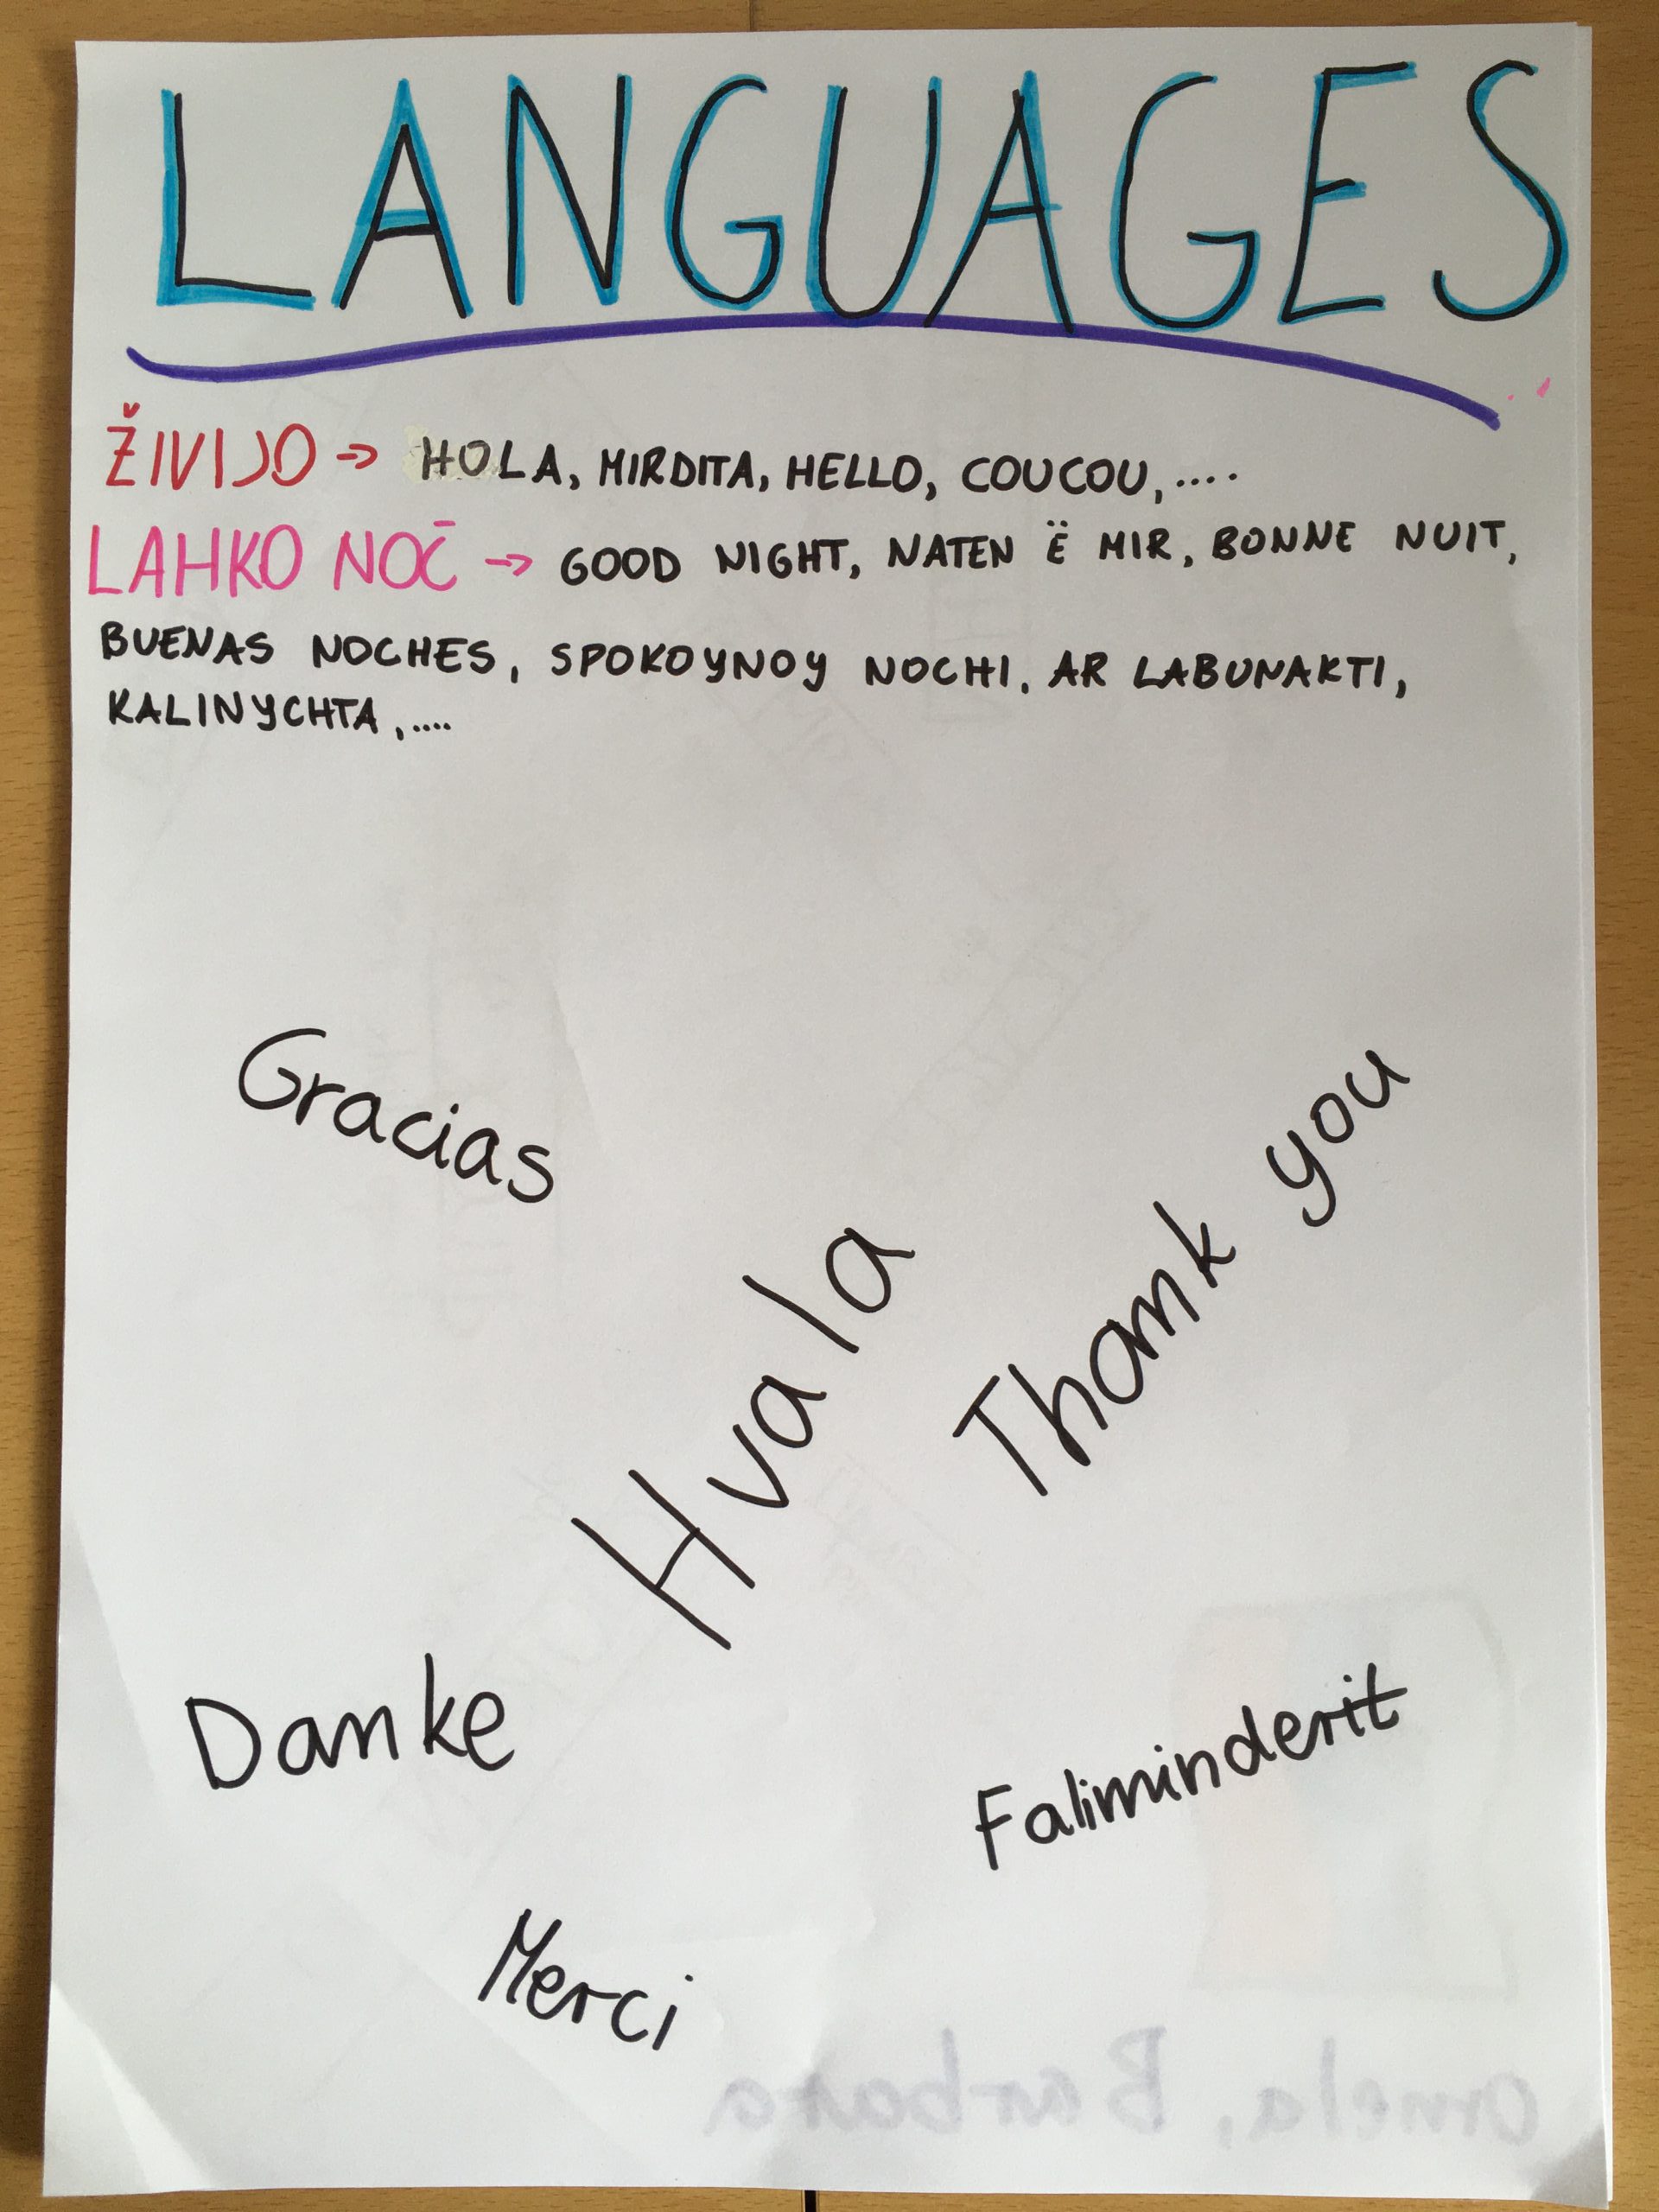 LANGUAGES
ŽIVIJO → HOLA, MIRDITA, HELLO, COUCOU, ....
LAHKO NOČ → GOOD NIGHT, NATEN Ë MIR, BONNE NUIT,
BUENAS NOCHES, SPOKOYNOY NOCHI, AR LABUNAKTI,
KALINYCHTA, ....
Gracias
Thank you
Hvala
Danke
Faliminderit
Merci
Omela, Barbara